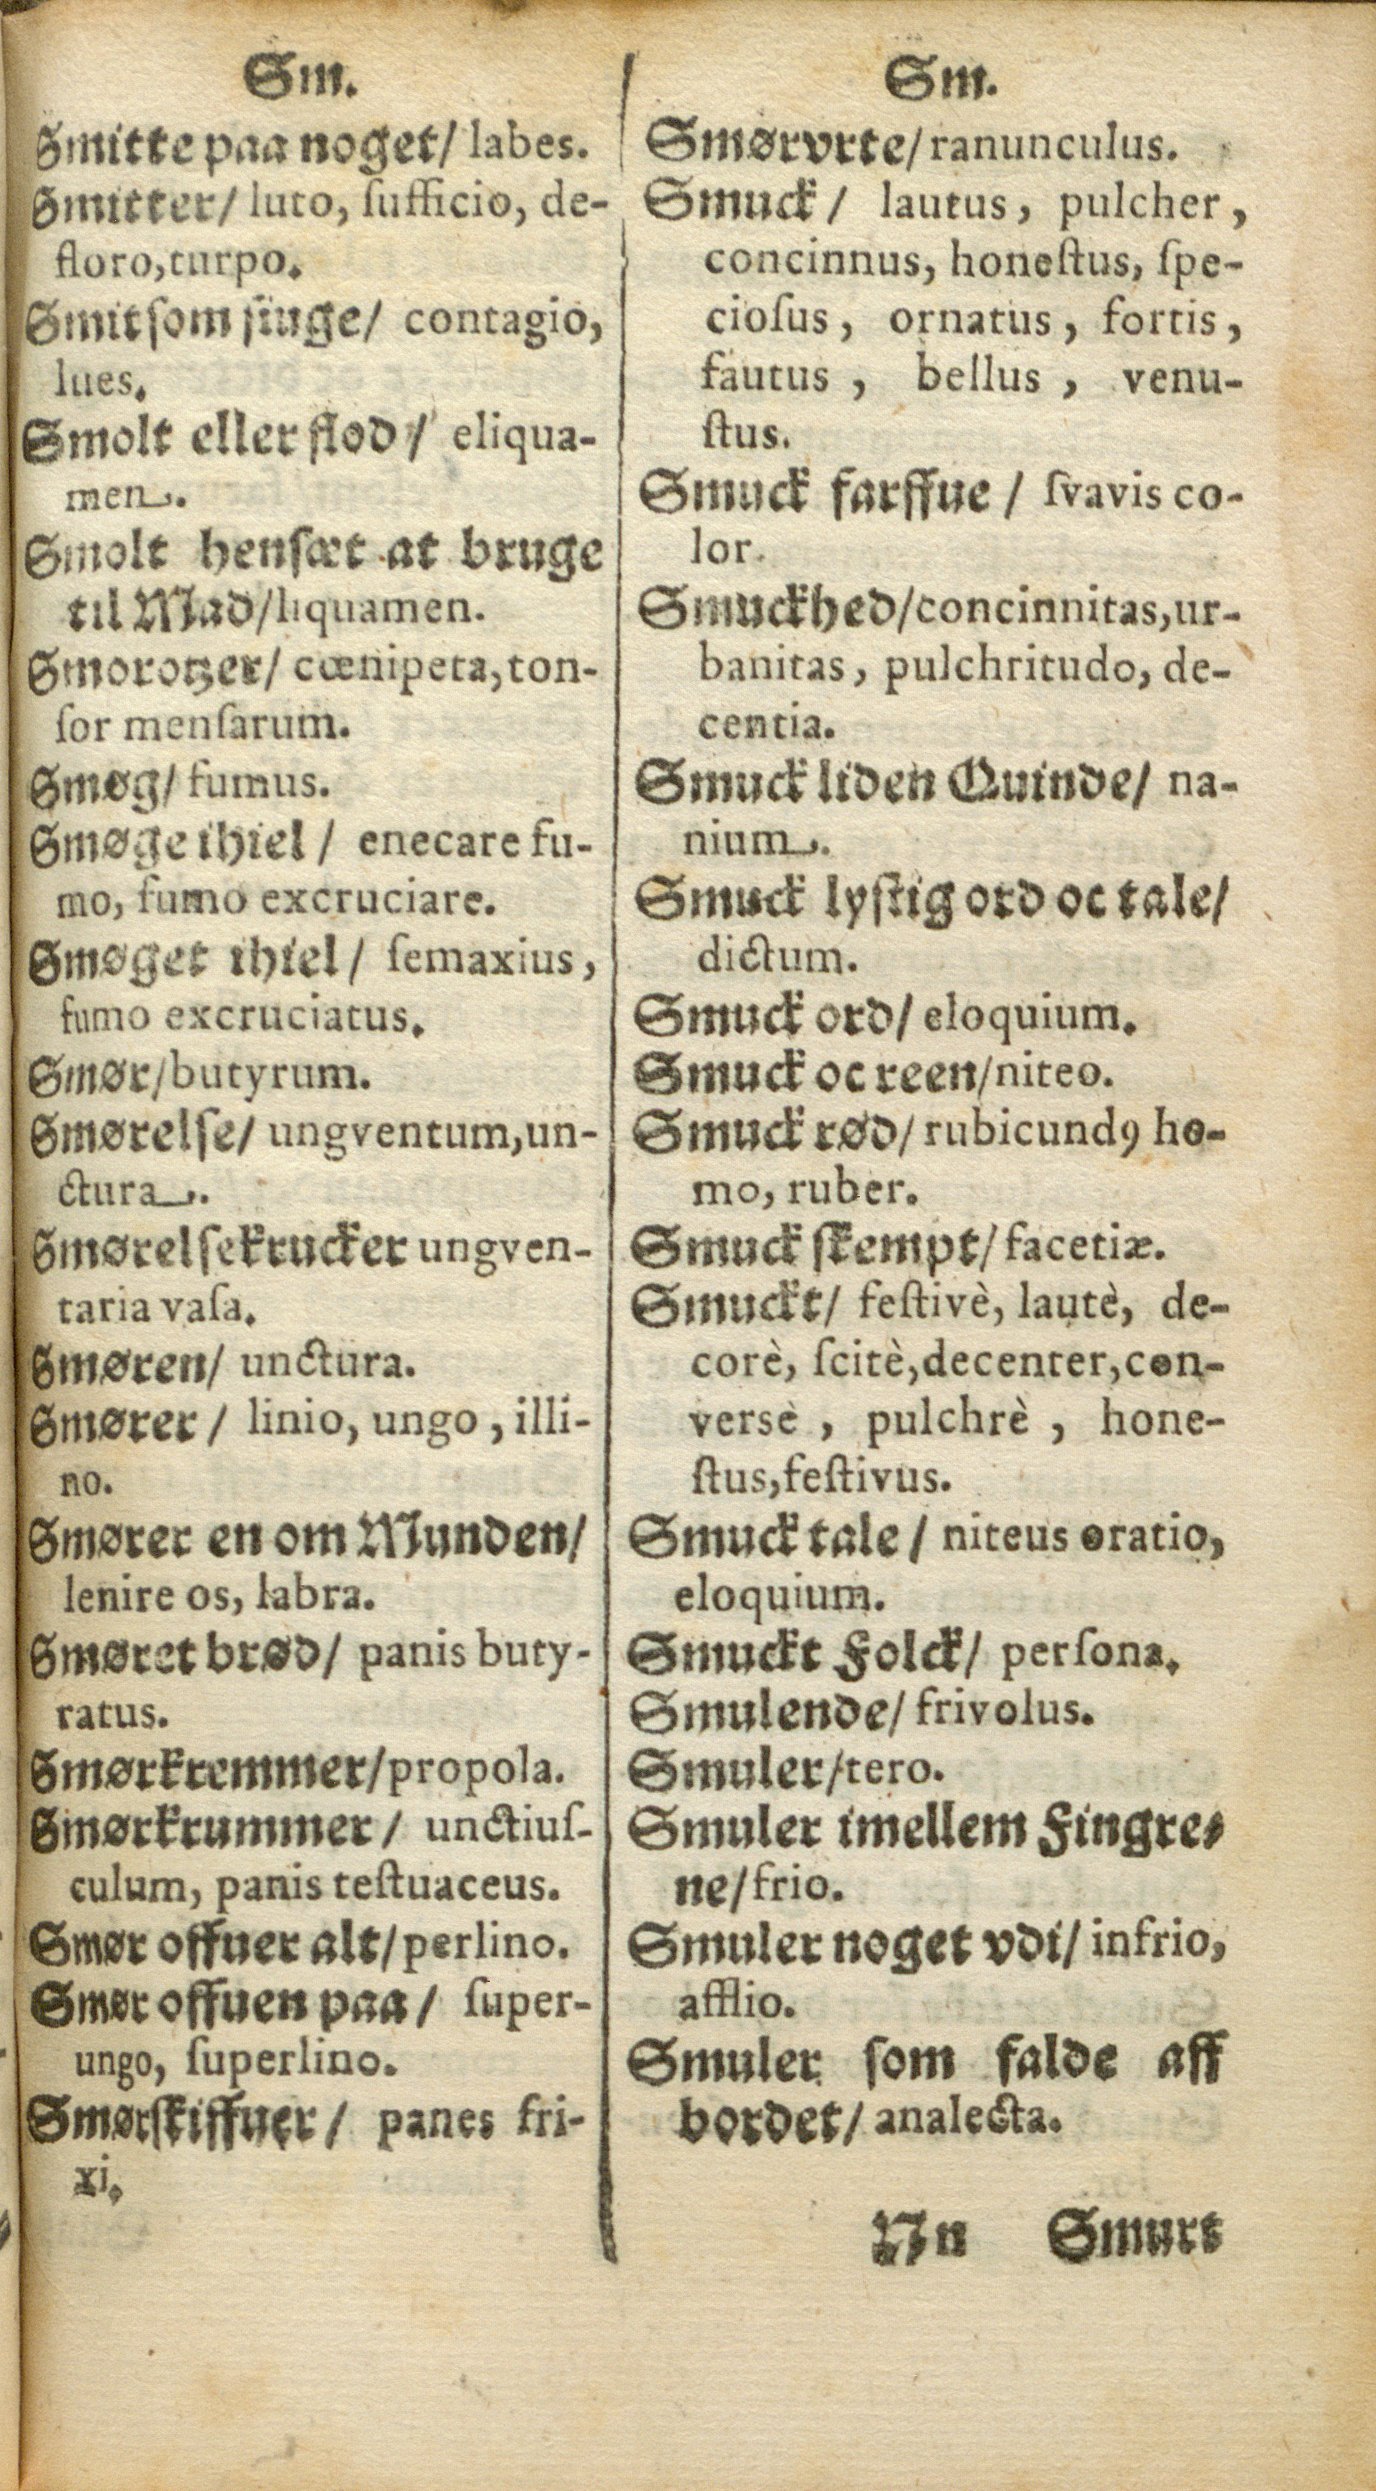 Sm.
Smitte paa noget/ labes.
Smitter/ luto, ſufficio, de-
floro, turpo.
Smitſom ſiuge/ contagio,
lues.
Smolt eller flod/ eliqua-
men.
Smolt henſæt at bruge
til Mad/ liquamen.
Smorotzer/ cœnipeta, ton-
ſor menſarum.
Smøg/ fumus.
Smøge ihiel/ enecare fu-
mo, fumo excruciare.
Smøget ihiel/ ſemaxius,
fumo excruciatus.
Smør/ butyrum.
Smørelſe/ ungventum, un-
ctura.
Smørelſekrucker ungven-
taria vaſa.
Smøren/ unctura.
Smører/ linio, ungo, illi-
no.
Smører en om Munden/
lenire os, labra.
Smøret brød/ panis buty-
ratus.
Smørkremmer/ propola.
Smørkrummer/ unctiuſ-
culum, panis teſtuaceus.
Smør offuer alt/ perlino.
Smør offuen paa/ ſuper-
ungo, ſuperlino.
Smørſkiffuer/ panes fri-
xi.
Sm.
Smørvrte/ ranunculus.
Smuck/ lautus, pulcher,
concinnus, honeſtus, ſpe-
cioſus, ornatus, fortis,
fautus, bellus, venu-
ſtus.
Smuck farffue/ ſvavis co-
lor.
Smuckhed/ concinnitas, ur-
banitas, pulchritudo, de-
centia.
Smuck liden Quinde/ na-
nium.
Smuck lyſtig ord oc tale/
dictum.
Smuck ord/ eloquium.
Smuck oc reen/ niteo.
Smuck rød/ rubicundꝯ ho-
mo, ruber.
Smuck ſkempt/ facetiæ.
Smuckt/ feſtivè, lautè, de-
corè, ſcitè, decenter, con-
versè, pulchrè, hone-
ſtus, feſtivus.
Smuck tale/ niteus oratio,
eloquium.
Smuckt Folck/ perſona.
Smulende/ frivolus.
Smuler/ tero.
Smuler imellem Fingre-
ne/ frio.
Smuler noget vdi/ infrio,
afflio.
Smuler ſom falde aff
bordet/ analecta.
Nn Smurt